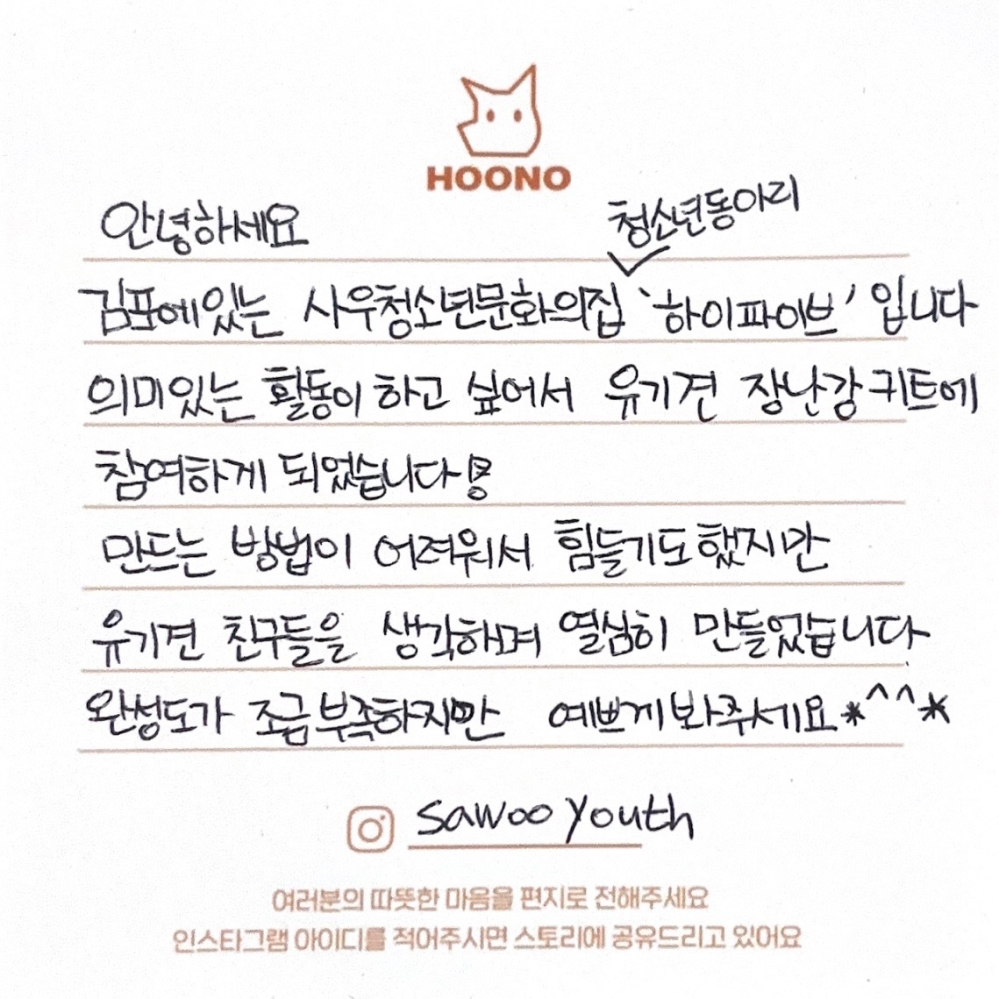 HOONO
안녕하세요
청소년동아리
김포에있는 사우청소년문화의집 '하이파이브' 입니다
의미있는 활동이 하고 싶어서 유기견 장난감 키트에
참여하게 되었습니다!
만드는 방법이 어려워서 힘들기도 했지만
유기견 친구들을 생각하며 열심히 만들었습니다
완성도가 조금 부족하지만 예쁘게 봐주세요*^^*
sawoo youth
여러분의 따뜻한 마음을 편지로 전해주세요
인스타그램 아이디를 적어주시면 스토리에 공유드리고 있어요